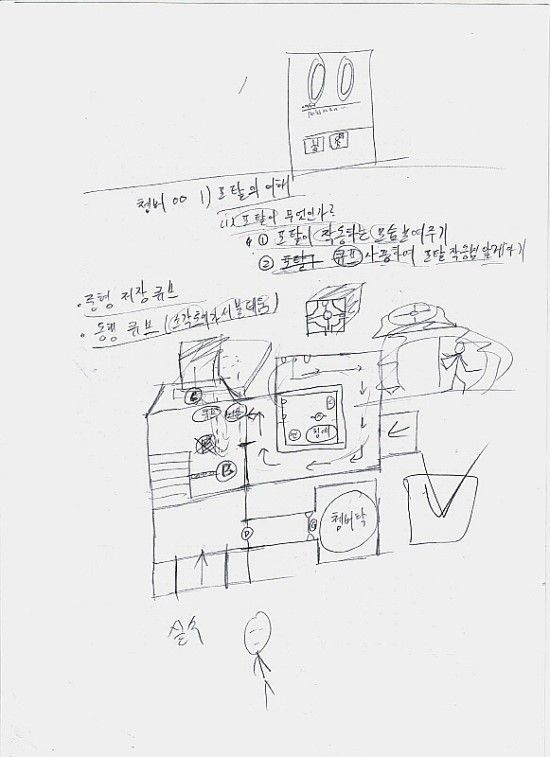 챔버 00 1) 포탈의 이해
(1) 포탈이 무엇인가?
① 포탈이 작동하는 모습 보여주기
② 포탈 큐브 사용하여 포탈 작동법 알게하기
· 중형 저장 큐브
· 동행 큐브 (소각로에 가서 불태움)
큐브
버튼
침대
B
D
챔버락
실수